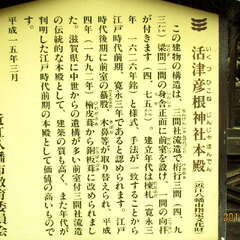 活津彦根神社本殿
いくつひこねじんじゃほんでん
(近江八幡市指定文化財)
この建物の構造は、三間社流造で桁行三間(四、九
三㍍)梁間二間の身舎正面に前室を設け、一間の向拝
が付きます(四、七五㍍)。建立年代は棟札(寛永三
年 一六二六年銘)と様式、手法が一致することから
江戸時代前期、寛永三年であると認められます。江戸
時代後期に前室の蟇股、木鼻等が取り替えられ、平成
四年(一九九二年)檜皮葺から銅板葺に改められまし
た。滋賀県に中世からの遺構が多い前室付三間社流造
の伝統的な本殿として、建築の質も高く、また年代が
判明した江戸時代前期の本殿として価値の高いもので
す。
平成一五年三月
近江八幡市教育委員会